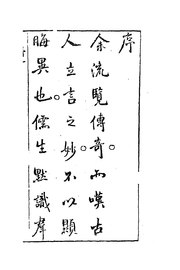 序
余流覽傳奇而嘆古
人立言之妙不以顯
晦異也儒生默識羣